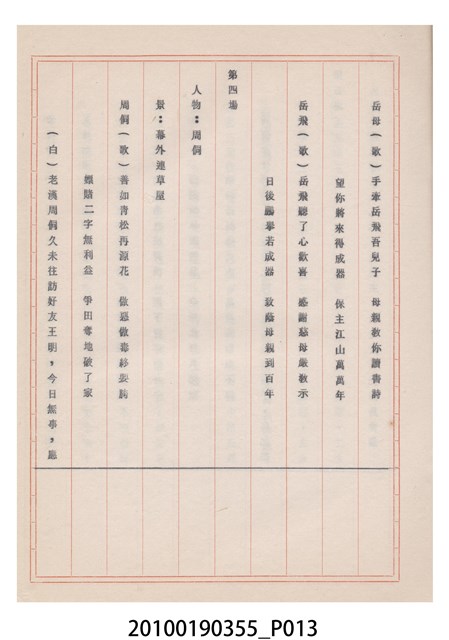 岳母(歌)手牽岳飛吾兒子 母親教你讀書詩
望你將來得成器 保主江山萬萬年
岳飛(歌)岳飛聽了心歡喜 感謝慈母嚴教示
日後鵬舉若成器 放蔭母親到百年
第四場
人物:周侗
景:幕外連草屋
周侗(歌)善如青松再源花 做惡做毒
嫖賭二字無利益 爭田奪地破了家
(白)老漢周侗久未往訪好友王明,今日無事,
20100190355_P013